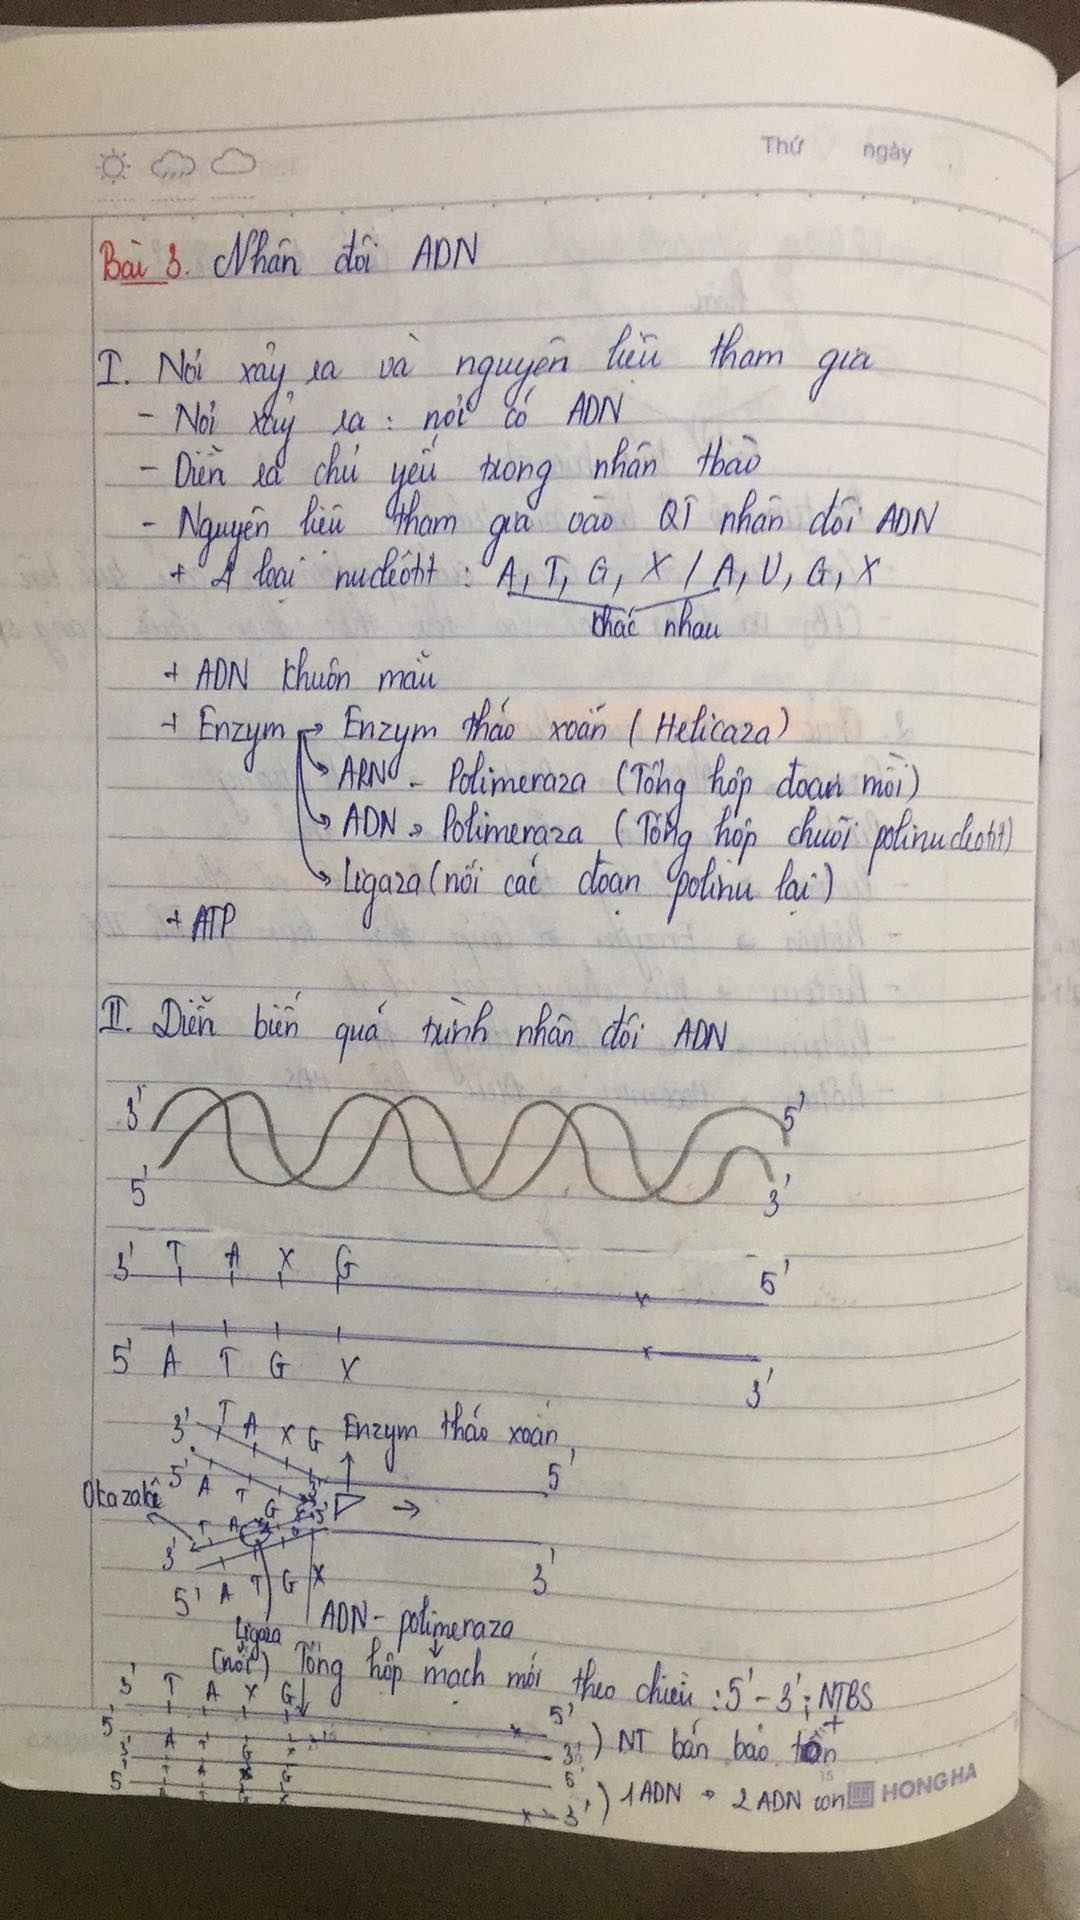 Thứ ngày
Bài 3. Nhân đôi ADN
I. Nơi xảy ra và nguyên liệu tham gia
- Nơi xảy ra : nơi có ADN
- Diễn ra chủ yếu trong nhân tbào
- Nguyên liệu tham gia vào QT nhân đôi ADN
+ 4 loại nucleôtit : A, T, G, X / A, U, G, X
khác nhau
+ ADN khuôn mẫu
+ Enzym → Enzym tháo xoắn ( Helicaza )
→ ARN - Polimeraza ( Tổng hợp đoạn mồi )
→ ADN → Polimeraza ( Tổng hợp chuỗi polinucleotit )
→ Ligaza ( nối các đoạn polinu lại )
+ ATP
II. Diễn biến quá trình nhân đôi ADN
3' 5'
5' 3'
3' T A X G 5'
5' A T G X 3'
3' T A X G Enzym tháo xoắn
5' A T G X 3' 5'
Okazaki T A X G 5'
3' 3'
5' A T G X
ADN - polimeraza
Ligaza
(nối) Tổng hợp mạch mới theo chiều : 5' - 3' ; NTBS
3' T A X G 5'
5' A T G X 3' ) NT bán bảo tồn +
3' T A X G 5'
5' A T G X 3' ) 1 ADN → 2 ADN con
HONG HA